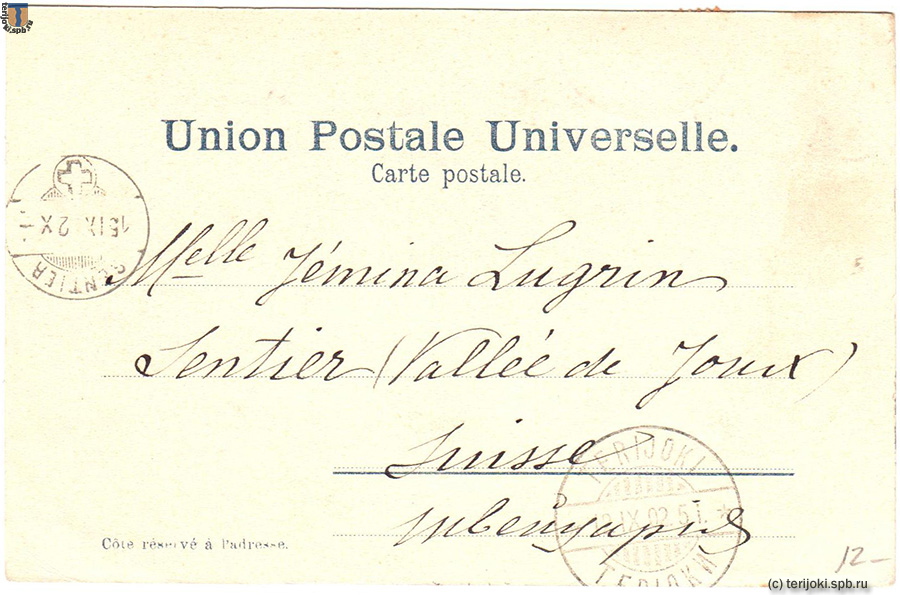 terijoki.spb.ru
Union Postale Universelle.
Carte postale.
15 IX 2 X
SENTIER
Melle Jémina Lugrin
Sentier (Vallée de Joux)
Suisse
Швейцарія
TERIJOKI
IX.02. 5 I.
ТЕРІОКИ
Côte réservé à l'adresse.
12-
(c) terijoki.spb.ru